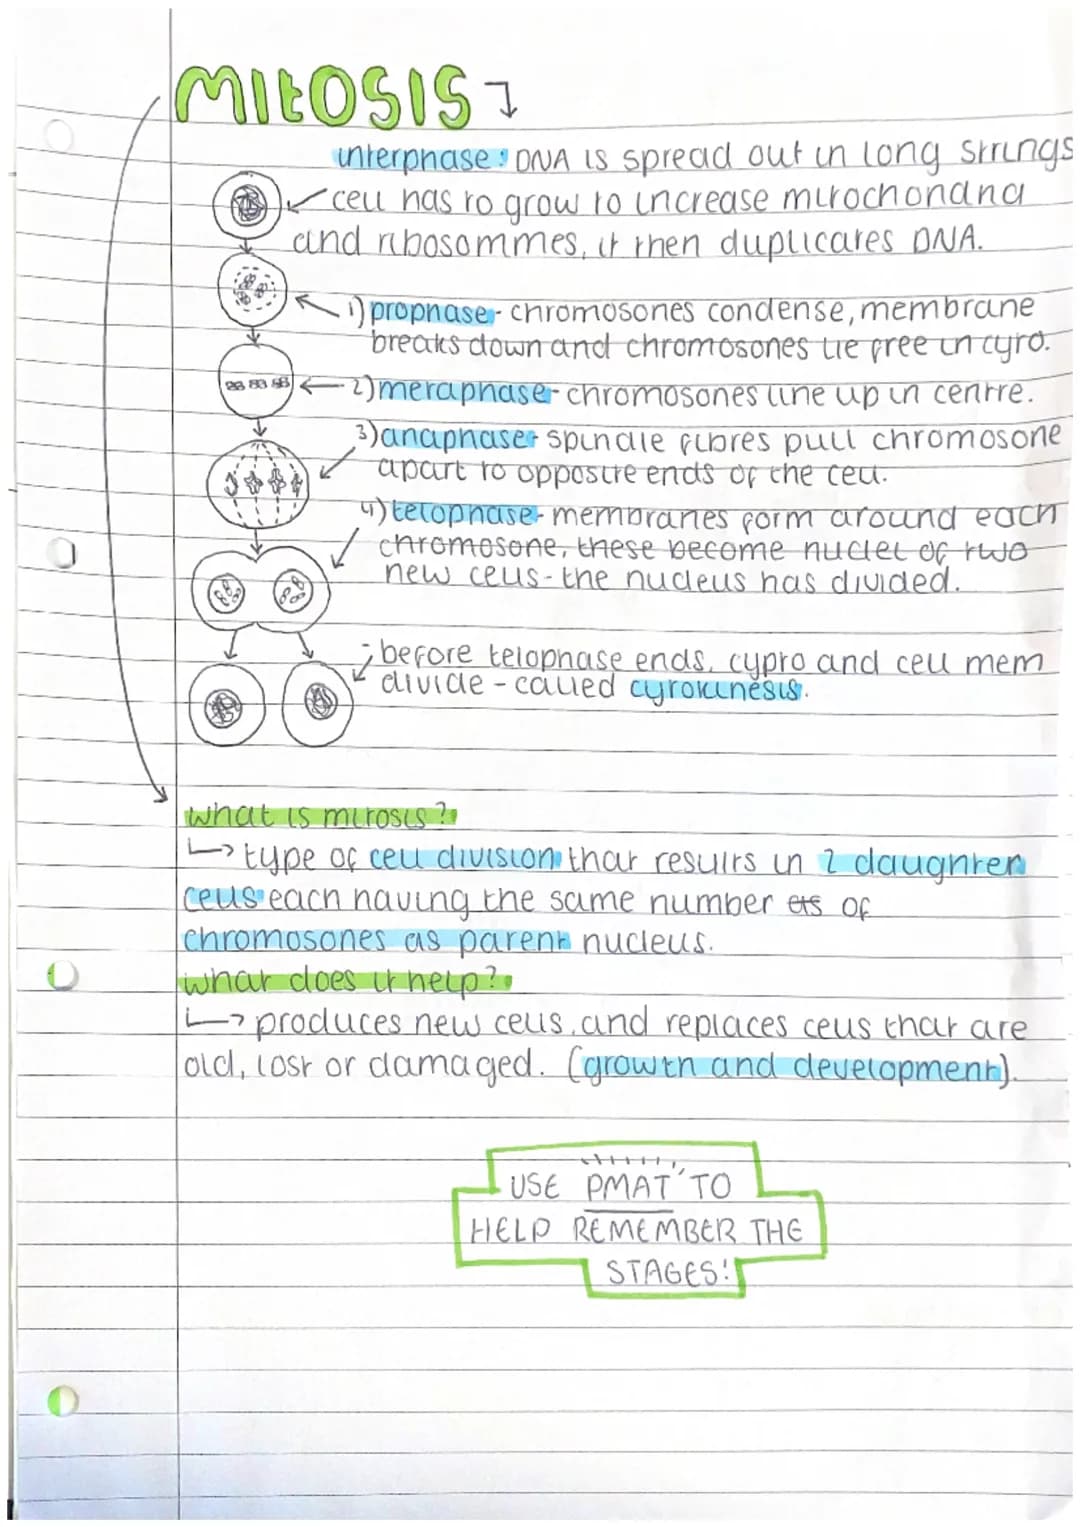 MITOSIS
interphase: DNA is spread out in long strings
cell has to grow to increase mitochondria
and ribosommes, it then duplicates DNA.
1) prophase - chromosones condense, membrane
breaks down and chromosones lie free in cyto.
2) metaphase - chromosones line up in centre.
3) anaphase - spindle fibres pull chromosone
apart to opposite ends of the cell.
4) telophase - membranes form around each
chromosone, these become nuclei of two
new cells - the nucleus has divided.
- before telophase ends, cypto and cell mem
divide - called cytokinesis.
what is mitosis?
↳ type of cell division that results in 2 daughter
cells each having the same number of
chromosones as parent nucleus.
what does it help?
↳ produces new cells, and replaces cells that are
old, lost or damaged. (growth and development).
USE PMAT TO
HELP REMEMBER THE
STAGES!